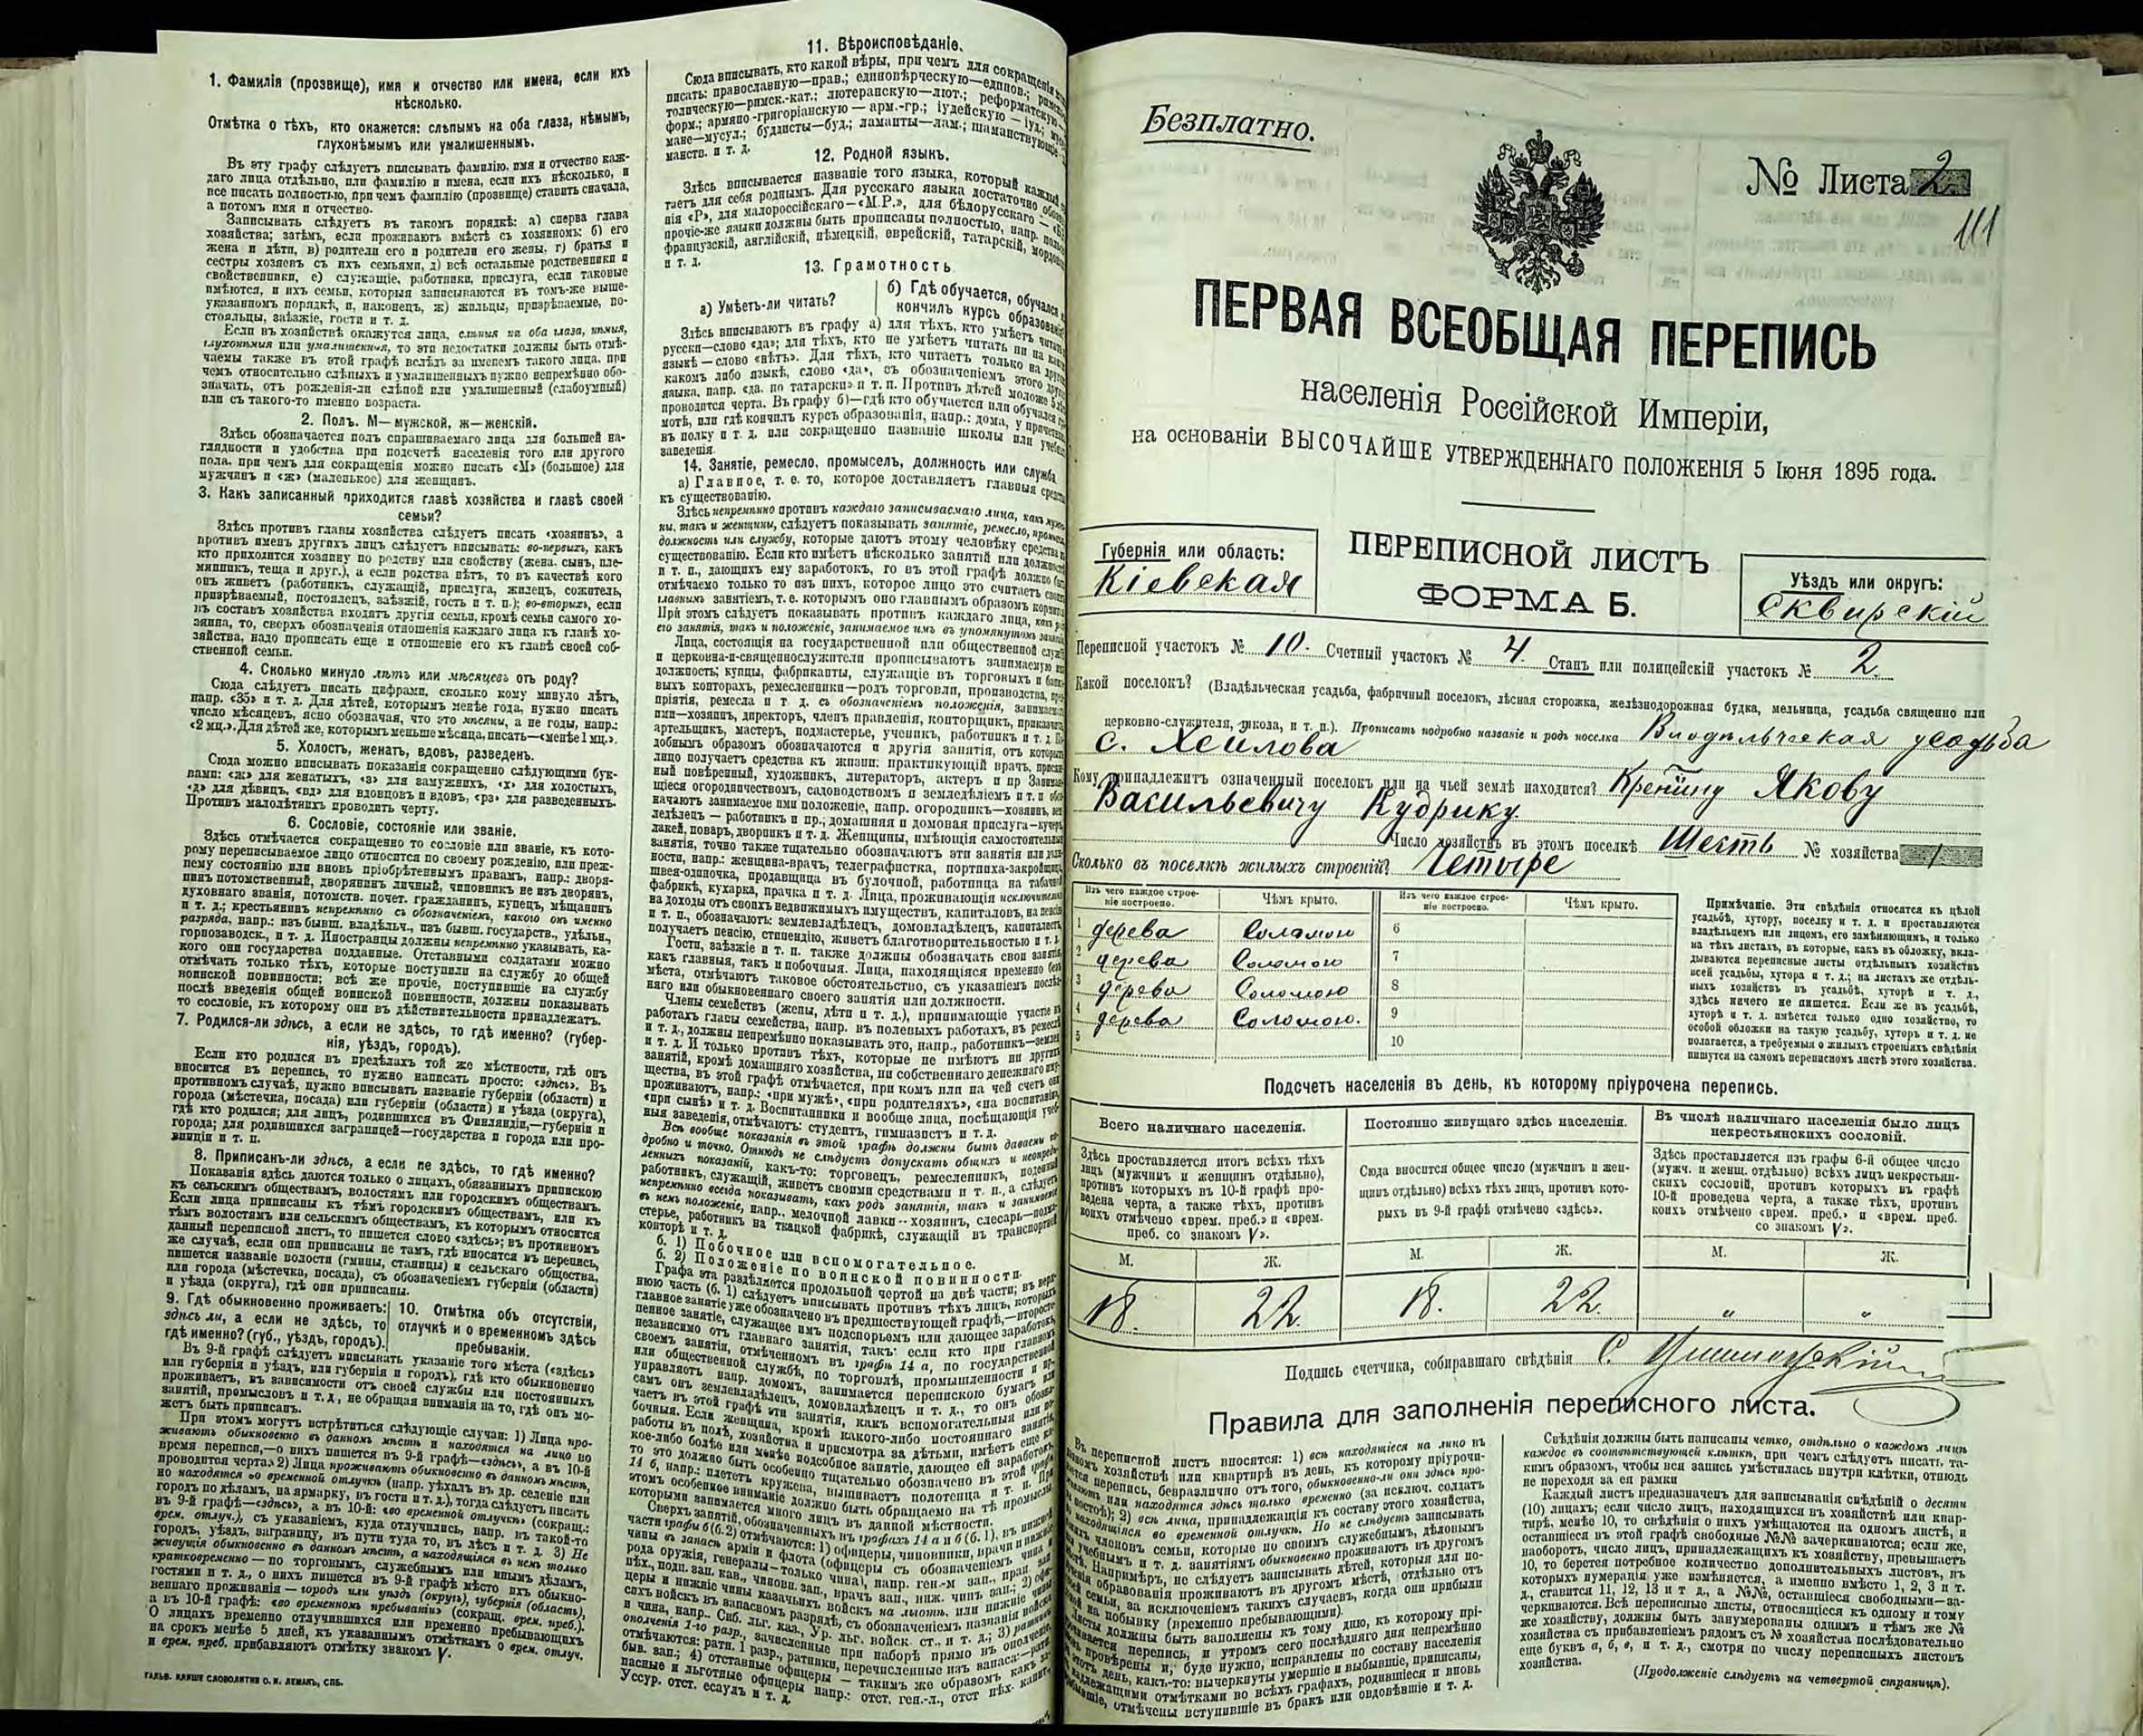 1. Фамилія (прозвище), имя и отчество или имена, если ихъ
нѣсколько.
Отмѣтка о тѣхъ, кто окажется: слѣпымъ на оба глаза, нѣмымъ,
глухонѣмымъ или умалишеннымъ.
Въ эту графу слѣдуетъ вписывать фамилію, имя и отчество каж-
даго лица отдѣльно, или фамилію и имена, если ихъ нѣсколько, и
все писать полностью, при чемъ фамилію (прозвище) ставить сначала,
а потомъ имя и отчество.
Записывать слѣдуетъ въ такомъ порядкѣ: а) сперва глава
хозяйства; затѣмъ, если проживаютъ вмѣстѣ съ хозяиномъ: б) его
жена и дѣти, в) родители его и родители его жены, г) братья и
сестры хозяевъ съ ихъ семьями, д) всѣ остальные родственники и
свойственники, е) служащіе, работники, прислуга, если таковые
имѣются, и ихъ семьи, которыя записываются въ томъ-же выше-
указанномъ порядкѣ, и, наконецъ, ж) жильцы, призрѣваемые, по-
стояльцы, заѣзжіе, гости и т. д.
Если въ хозяйствѣ окажутся лица, слѣпыя на оба глаза, нѣмыя,
глухонѣмыя или умалишенныя, то эти недостатки должны быть отмѣ-
чаемы также въ этой графѣ вслѣдъ за именемъ такого лица, при
чемъ относительно слѣпыхъ и умалишенныхъ нужно непремѣнно обо-
значать, отъ рожденія-ли слѣпой или умалишенный (слабоумный)
или съ такого-то именно возраста.
2. Полъ. М—мужской, ж—женскій.
Здѣсь обозначается полъ спрашиваемаго лица для большей на-
глядности и удобства при подсчетѣ населенія того или другого
пола, при чемъ для сокращенія можно писать «М» (большое) для
мужчинъ и «ж» (маленькое) для женщинъ.
3. Какъ записанный приходится главѣ хозяйства и главѣ своей
семьи?
Здѣсь противъ главы хозяйства слѣдуетъ писать «хозяинъ», а
противъ именъ другихъ лицъ слѣдуетъ вписывать: во-первыхъ, какъ
кто приходится хозяину по родству или свойству (жена, сынъ, пле-
мянникъ, теща и друг.), а если родства нѣтъ, то въ качествѣ кого
онъ живетъ (работникъ, служащій, прислуга, жилецъ, сожитель,
призрѣваемый, постоялецъ, заѣзжій, гость и т. п.); во-вторыхъ, если
въ составъ хозяйства входятъ другія семьи, кромѣ семьи самого хо-
зяина, то, сверхъ обозначенія отношенія каждаго лица къ главѣ хо-
зяйства, надо прописать еще и отношеніе его къ главѣ своей соб-
ственной семьи.
4. Сколько минуло лѣтъ или мѣсяцевъ отъ роду?
Сюда слѣдуетъ писать цифрами, сколько кому минуло лѣтъ,
напр. «35» и т. д. Для дѣтей, которымъ менѣе года, нужно писать
число мѣсяцевъ, ясно обозначая, что это мѣсяцы, а не годы, напр.:
«2 мц.». Для дѣтей же, которымъ меньше мѣсяца, писать—«менѣе 1 мц.».
5. Холостъ, женатъ, вдовъ, разведенъ.
Сюда можно вписывать показанія сокращенно слѣдующими бук-
вами: «ж» для женатыхъ, «з» для замужнихъ, «х» для холостыхъ,
«д» для дѣвицъ, «вд» для вдовцовъ и вдовъ, «рз» для разведенныхъ.
Противъ малолѣтнихъ проводить черту.
6. Сословіе, состояніе или званіе.
Здѣсь отмѣчается сокращенно то сословіе или званіе, къ кото-
рому переписываемое лицо относится по своему рожденію, или преж-
нему состоянію или вновь пріобрѣтеннымъ правамъ, напр.: дворя-
нинъ потомственный, дворянинъ личный, чиновникъ не изъ дворянъ,
духовнаго званія, потомств. почет. гражданинъ, купецъ, мѣщанинъ
и т. д.; крестьянинъ непремѣнно съ обозначеніемъ, какого онъ именно
разряда, напр.: изъ бывш. владѣльч., изъ бывш. государств., удѣльн.,
горнозаводск., и т. д. Иностранцы должны непремѣнно указывать, ка-
кого они государства подданные. Отставными солдатами можно
отмѣчать только тѣхъ, которые поступили на службу до общей
воинской повинности; всѣ же прочіе, поступившіе на службу
послѣ введенія общей воинской повинности, должны показывать
то сословіе, къ которому они въ дѣйствительности принадлежатъ.
7. Родился-ли здѣсь, а если не здѣсь, то гдѣ именно? (губер-
нія, уѣздъ, городъ).
Если кто родился въ предѣлахъ той же мѣстности, гдѣ онъ
вносится въ перепись, то нужно написать просто: «здѣсь». Въ
противномъ случаѣ, нужно вписывать названіе губерніи (области) и
города (мѣстечка, посада) или губерніи (области) и уѣзда (округа),
гдѣ кто родился; для лицъ, родившихся въ Финляндіи,—губерніи и
города; для родившихся заграницей—государства и города или про-
винціи и т. п.
8. Приписанъ-ли здѣсь, а если не здѣсь, то гдѣ именно?
Показанія здѣсь даются только о лицахъ, обязанныхъ припискою
къ сельскимъ обществамъ, волостямъ или городскимъ обществамъ.
Если лица приписаны къ тѣмъ городскимъ обществамъ, или къ
тѣмъ волостямъ или сельскимъ обществамъ, къ которымъ относится
данный переписной листъ, то пишется слово «здѣсь»; въ противномъ
же случаѣ, если они приписаны не тамъ, гдѣ вносятся въ перепись,
пишется названіе волости (гмины, станицы) и сельскаго общества,
или города (мѣстечка, посада), съ обозначеніемъ губерніи (области)
и уѣзда (округа), гдѣ они приписаны.
9. Гдѣ обыкновенно проживаетъ:
здѣсь ли, а если не здѣсь, то
гдѣ именно? (губ., уѣздъ, городъ).
10. Отмѣтка объ отсутствіи,
отлучкѣ и о временномъ здѣсь
пребываніи.
Въ 9-й графѣ слѣдуетъ вписывать указаніе того мѣста («здѣсь»
или губернія и уѣздъ, или губернія и городъ), гдѣ кто обыкновенно
проживаетъ, въ зависимости отъ своей службы или постоянныхъ
занятій, промысловъ и т. д., не обращая вниманія на то, гдѣ онъ мо-
жетъ быть приписанъ.
При этомъ могутъ встрѣтиться слѣдующіе случаи: 1) Лица про-
живаютъ обыкновенно въ данномъ мѣстѣ и находятся на лицо во
время переписи,—о нихъ пишется въ 9-й графѣ—«здѣсь», а въ 10-й
проводится черта. 2) Лица проживаютъ обыкновенно въ данномъ мѣстѣ,
но находятся «о временной отлучкѣ (напр. уѣхалъ въ др. селеніе или
городъ по дѣламъ, на ярмарку, въ гости и т. д.), тогда слѣдуетъ писать
въ 9-й графѣ—«здѣсь», а въ 10-й: «во временной отлучкѣ» (сокращ.:
врем. отлуч.), съ указаніемъ, куда отлучились, напр. въ такой-то
городъ, уѣздъ, заграницу, въ пути туда то, въ лѣсъ и т. д. 3) Не
живущія обыкновенно въ данномъ мѣстѣ, а находящіяся въ немъ только
кратковременно — по торговымъ, служебнымъ или инымъ дѣламъ,
гостями и т. д., о нихъ пишется въ 9-й графѣ мѣсто ихъ обыкно-
веннаго проживанія — городъ или уѣздъ (округъ), губернія (область),
а въ 10-й графѣ: «во временномъ пребываніи» (сокращ. врем. преб.).
О лицахъ временно отлучившихся или временно пребывающихъ
на срокъ менѣе 5 дней, къ указаннымъ отмѣткамъ о врем. отлуч.
и врем. преб. прибавляютъ отмѣтку знакомъ V.
ГАЛЬВ. КЛИШЕ СЛОВОЛИТНИ О. И. ЛЕМАНЪ, СПБ.
11. Вѣроисповѣданіе.
Сюда вписывать, кто какой вѣры, при чемъ для сокращенія
писать: православную—прав.; единовѣрческую—единов.;
толическую—римск.-кат.; лютеранскую—лют.; реформатскую
форм.; армяно-григоріанскую — арм.-гр.; іудейскую — іуд.;
мане—мусул.; буддисты—буд.; ламаиты—лам.; шаманствующіе
манств. и т. д.
12. Родной языкъ.
Здѣсь вписывается названіе того языка, который каждый
таетъ для себя роднымъ. Для русскаго языка достаточно
нія «Р», для малороссійскаго—«М.Р.», для бѣлорусскаго —
прочіе-же языки должны быть прописаны полностью, напр.
французскій, англійскій, нѣмецкій, еврейскій, татарскій,
и т. д.
13. Грамотность
а) Умѣетъ-ли читать?
б) Гдѣ обучается, обучался
кончилъ курсъ образованія
Здѣсь вписываютъ въ графу а) для тѣхъ, кто умѣетъ читать
русски—слово «да»; для тѣхъ, кто не умѣетъ читать ни на
языкѣ — слово «нѣтъ». Для тѣхъ, кто читаетъ только на
какомъ либо языкѣ, слово «да», съ обозначеніемъ этого
языка, напр. «да, по татарски» и т. п. Противъ дѣтей моложе 5
проводится черта. Въ графу б)—гдѣ кто обучается или обучался
мотѣ, или гдѣ кончилъ курсъ образованія, напр.: дома, у
въ полку и т. д. или сокращенно названіе школы или
заведенія.
14. Занятіе, ремесло, промыселъ, должность или служба.
а) Главное, т. е. то, которое доставляетъ главныя
къ существованію.
Здѣсь непремѣнно противъ каждаго записываемаго лица, какъ
ны, такъ и женщины, слѣдуетъ показывать занятіе, ремесло,
должность или службу, которые даютъ этому человѣку средства
существованію. Если кто имѣетъ нѣсколько занятій или
и т. п., дающихъ ему заработокъ, то въ этой графѣ должно
отмѣчаемо только то изъ нихъ, которое лицо это считаетъ
главнымъ занятіемъ, т. е. которымъ оно главнымъ образомъ
При этомъ слѣдуетъ показывать противъ каждаго лица, какъ
его занятія, такъ и положеніе, занимаемое имъ въ упомянутомъ
Лица, состоящія на государственной или общественной
и церковно-и-священнослужители прописываютъ занимаемую
должность; купцы, фабриканты, служащіе въ торговыхъ и
выхъ конторахъ, ремесленники—родъ торговли, производства,
пріятія, ремесла и т. д. съ обозначеніемъ положенія,
ими—хозяинъ, директоръ, членъ правленія, конторщикъ,
артельщикъ, мастеръ, подмастерье, ученикъ, работникъ и т. д.
добнымъ образомъ обозначаются и другія занятія, отъ
лицо получаетъ средства къ жизни: практикующій врачъ,
ный повѣренный, художникъ, литераторъ, актеръ и пр
щіеся огородничествомъ, садоводствомъ и земледѣліемъ и т. п.
начаютъ занимаемое ими положеніе, напр. огородникъ—хозяинъ,
ледѣлецъ — работникъ и пр.; домашняя и домовая прислуга—кучеръ,
лакей, поваръ, дворникъ и т. д. Женщины, имѣющія самостоятельныя
занятія, точно также тщательно обозначаютъ эти занятія или
ности, напр.: женщина-врачъ, телеграфистка, портниха-закройщица,
швея-одиночка, продавщица въ булочной, работница на табачной
фабрикѣ, кухарка, прачка и т. д. Лица, проживающія исключительно
на доходы отъ своихъ недвижимыхъ имуществъ, капиталовъ, на пенсію
и т. п., обозначаютъ: землевладѣлецъ, домовладѣлецъ, капиталистъ,
получаетъ пенсію, стипендію, живетъ благотворительностью и т. д.
Гости, заѣзжіе и т. п. также должны обозначать свои занятія,
какъ главныя, такъ и побочныя. Лица, находящіяся временно безъ
мѣста, отмѣчаютъ таковое обстоятельство, съ указаніемъ послѣд-
няго или обыкновеннаго своего занятія или должности.
Члены семействъ (жены, дѣти и т. д.), принимающіе участіе въ
работахъ главы семейства, напр. въ полевыхъ работахъ, въ ремеслѣ
и т. д., должны непремѣнно показывать это, напр., работникъ—
и т. д. И только противъ тѣхъ, которые не имѣютъ ни другихъ
занятій, кромѣ домашняго хозяйства, ни собственнаго денежнаго иму-
щества, въ этой графѣ отмѣчается, при комъ или на чей счетъ они
проживаютъ, напр.: «при мужѣ», «при родителяхъ», «на воспитаніи»,
«при сынѣ» и т. д. Воспитанники и вообще лица, посѣщающія учеб-
ныя заведенія, отмѣчаютъ: студентъ, гимназистъ и т. д.
Всѣ вообще показанія въ этой графѣ должны быть даваемы по-
дробно и точно. Отнюдь не слѣдуетъ допускать общихъ и неопредѣ-
ленныхъ показаній, какъ-то: торговецъ, ремесленникъ, поденный
работникъ, служащій, живетъ своими средствами и т. п., а слѣдуетъ
непремѣнно всегда показывать, какъ родъ занятія, такъ и занимаемое
въ немъ положеніе, напр., мелочной лавки--хозяинъ, слесарь—подма-
стерье, работникъ на ткацкой фабрикѣ, служащій въ транспортной
конторѣ и т. д.
б. 1) Побочное или вспомогательное.
б. 2) Положеніе по воинской повинности.
Графа эта раздѣляется продольной чертой на двѣ части; въ верх-
нюю часть (б. 1) слѣдуетъ вписывать противъ тѣхъ лицъ, которыхъ
главное занятіе уже обозначено въ предшествующей графѣ,—второсте-
пенное занятіе, служащее имъ подспорьемъ или дающее заработокъ,
независимо отъ главнаго занятія, такъ: если кто при главномъ
своемъ занятіи, отмѣченномъ въ графѣ 14 а, по государственной
или общественной службѣ, по торговлѣ, промышленности и пр.
управляетъ напр. домомъ, занимается перепискою бумагъ или
самъ онъ землевладѣлецъ, домовладѣлецъ и т. д., то онъ обозна-
чаетъ въ этой графѣ эти занятія, какъ вспомогательныя или по-
бочныя. Если женщина, кромѣ какого-либо постояннаго занятія,
работы въ полѣ, хозяйства и присмотра за дѣтьми, имѣетъ еще ка-
кое-либо болѣе или менѣе подсобное занятіе, дающее ей заработокъ,
то это должно быть особенно тщательно обозначено въ этой графѣ
14 б, напр.: плететъ кружева, вышиваетъ полотенца и т. п. При
этомъ особенное вниманіе должно быть обращаемо на тѣ промыслы,
которыми занимается много лицъ въ данной мѣстности.
Сверхъ занятій, обозначенныхъ въ графахъ 14 а и б (б. 1), въ нижней
части графы б (б. 2) отмѣчаются: 1) офицеры, чиновники, врачи и нижніе
чины въ запасѣ арміи и флота (офицеры съ обозначеніемъ чина и
рода оружія, генералы—только чина), напр. ген.-м зап., прап. зап.
пѣх., подп. зап. кав., чиновн. зап., врачъ зап., ниж. чинъ зап.; 2) офи-
церы и нижніе чины казачьихъ войскъ на льготѣ, или нижніе чины
сихъ войскъ въ запасномъ разрядѣ, съ обозначеніемъ названія войска
и чина, напр.. Сиб. льг. каз., Ур. льг. войск. ст. и т. д.; 3) ратники
ополченія 1-го разр., зачисленные при наборѣ прямо въ ополченіе,
отмѣчаются: ратн. 1 разр., ратники, перечисленные изъ запаса:—ратн.
быв. зап.; 4) отставные офицеры — такимъ же образомъ какъ за-
пасные и льготные офицеры напр.: отст. ген.-л., отст пѣх. капит.,
Уссур. отст. есаулъ и т. д.
Безплатно.
№ Листа 2
111
ПЕРВАЯ ВСЕОБЩАЯ ПЕРЕПИСЬ
населенія Россійской Имперіи,
на основаніи ВЫСОЧАЙШЕ УТВЕРЖДЕННАГО ПОЛОЖЕНІЯ 5 Іюня 1895 года.
Губернія или область:
Кіевская
ПЕРЕПИСНОЙ ЛИСТЪ
ФОРМА Б.
Уѣздъ или округъ:
Сквирскій
Переписной участокъ № 10. Счетный участокъ № 4. Станъ или полицейскій участокъ № 2.
Какой поселокъ? (Владѣльческая усадьба, фабричный поселокъ, лѣсная сторожка, желѣзнодорожная будка, мельница, усадьба священно или
церковно-служителя, школа, и т. п.). Прописать подробно названіе и родъ поселка Владѣльческая усадьба
с.
Кому принадлежитъ означенный поселокъ или на чьей землѣ находится? Якову
Васильевичу Кудрику.
Число хозяйствъ въ этомъ поселкѣ Шесть № хозяйства 1
Сколько въ поселкѣ жилыхъ строеній? Четыре
Изъ чего каждое строе-
ніе построено.
Чѣмъ крыто.
Изъ чего каждое строе-
ніе построено.
Чѣмъ крыто.
1 дерева Соломою 6
2 дерева Соломою 7
3 дерева Соломою 8
4 дерева Соломою. 9
5 10
Примѣчаніе. Эти свѣдѣнія относятся къ цѣлой
усадьбѣ, хутору, поселку и т. д. и проставляются
владѣльцемъ или лицомъ, его замѣняющимъ, и только
на тѣхъ листахъ, въ которые, какъ въ обложку, вкла-
дываются переписные листы отдѣльныхъ хозяйствъ
всей усадьбы, хутора и т. д.; на листахъ же отдѣль-
ныхъ хозяйствъ въ усадьбѣ, хуторѣ и т. д.,
здѣсь ничего не пишется. Если же въ усадьбѣ,
хуторѣ и т. д. имѣется только одно хозяйство, то
особой обложки на такую усадьбу, хуторъ и т. д. не
полагается, а требуемыя о жилыхъ строеніяхъ свѣдѣнія
пишутся на самомъ переписномъ листѣ этого хозяйства.
Подсчетъ населенія въ день, къ которому пріурочена перепись.
Всего наличнаго населенія.
Постоянно живущаго здѣсь населенія.
Въ числѣ наличнаго населенія было лицъ
некрестьянскихъ сословій.
Здѣсь проставляется итогъ всѣхъ тѣхъ
лицъ (мужчинъ и женщинъ отдѣльно),
противъ которыхъ въ 10-й графѣ про-
ведена черта, а также тѣхъ, противъ
коихъ отмѣчено «врем. преб.» и «врем.
преб. со знакомъ V».
Сюда вносится общее число (мужчинъ и жен-
щинъ отдѣльно) всѣхъ тѣхъ лицъ, противъ кото-
рыхъ въ 9-й графѣ отмѣчено «здѣсь».
Здѣсь проставляется изъ графы 6-й общее число
(мужч. и женщ. отдѣльно) всѣхъ лицъ некрестьян-
скихъ сословій, противъ которыхъ въ графѣ
10-й проведена черта, а также тѣхъ, противъ
коихъ отмѣчено «врем. преб.» и «врем. преб.
со знакомъ V».
М. Ж. М. Ж. М. Ж.
18. 22. 18. 22. „ „
Подпись счетчика, собиравшаго свѣдѣнія С.
Правила для заполненія переписного листа.
Въ переписной листъ вносятся: 1) всѣ находящіеся на лицо въ
хозяйствѣ или квартирѣ въ день, къ которому пріурочи-
перепись, безразлично отъ того, обыкновенно-ли они здѣсь про-
или находятся здѣсь только временно (за исключ. солдатъ
постоѣ); 2) всѣ лица, принадлежащія къ составу этого хозяйства,
находящіяся во временной отлучкѣ. Но не слѣдуетъ записывать
членовъ семьи, которые по своимъ служебнымъ, дѣловымъ
учебнымъ и т. д. занятіямъ обыкновенно проживаютъ въ другомъ
Напримѣръ, не слѣдуетъ записывать дѣтей, которыя для по-
образованія проживаютъ въ другомъ мѣстѣ, отдѣльно отъ
семьи, за исключеніемъ такихъ случаевъ, когда они прибыли
на побывку (временно пребывающими).
Листы должны быть заполнены къ тому дню, къ которому прі-
перепись, и утромъ сего послѣдняго дня непремѣнно
провѣрены и, буде нужно, исправлены по составу населенія
этотъ день, какъ-то: вычеркнуты умершіе и выбывшіе, приписаны,
надлежащими отмѣтками во всѣхъ графахъ, родившіеся и вновь
отмѣчены вступившіе въ бракъ или овдовѣвшіе и т. д.
Свѣдѣнія должны быть написаны четко, отдѣльно о каждомъ лицѣ
каждое въ соотвѣтствующей клѣткѣ, при чемъ слѣдуетъ писать та-
кимъ образомъ, чтобы вся запись умѣстилась внутри клѣтки, отнюдь
не переходя за ея рамки
Каждый листъ предназначенъ для записыванія свѣдѣній о десяти
(10) лицахъ; если число лицъ, находящихся въ хозяйствѣ или квар-
тирѣ, менѣе 10, то свѣдѣнія о нихъ умѣщаются на одномъ листѣ, и
оставшіеся въ этой графѣ свободные №№ зачеркиваются; если же,
наоборотъ, число лицъ, принадлежащихъ къ хозяйству, превышаетъ
10, то берется потребное количество дополнительныхъ листовъ, въ
которыхъ нумерація уже измѣняется, а именно вмѣсто 1, 2, 3 и т.
д., ставится 11, 12, 13 и т д., а №№, оставшіеся свободными—за-
черкиваются. Всѣ переписные листы, относящіеся къ одному и тому
же хозяйству, должны быть занумерованы однимъ и тѣмъ же №
хозяйства съ прибавленіемъ рядомъ съ № хозяйства послѣдовательно
еще буквъ а, б, в, и т. д., смотря по числу переписныхъ листовъ
хозяйства.
(Продолженіе слѣдуетъ на четвертой страницѣ).